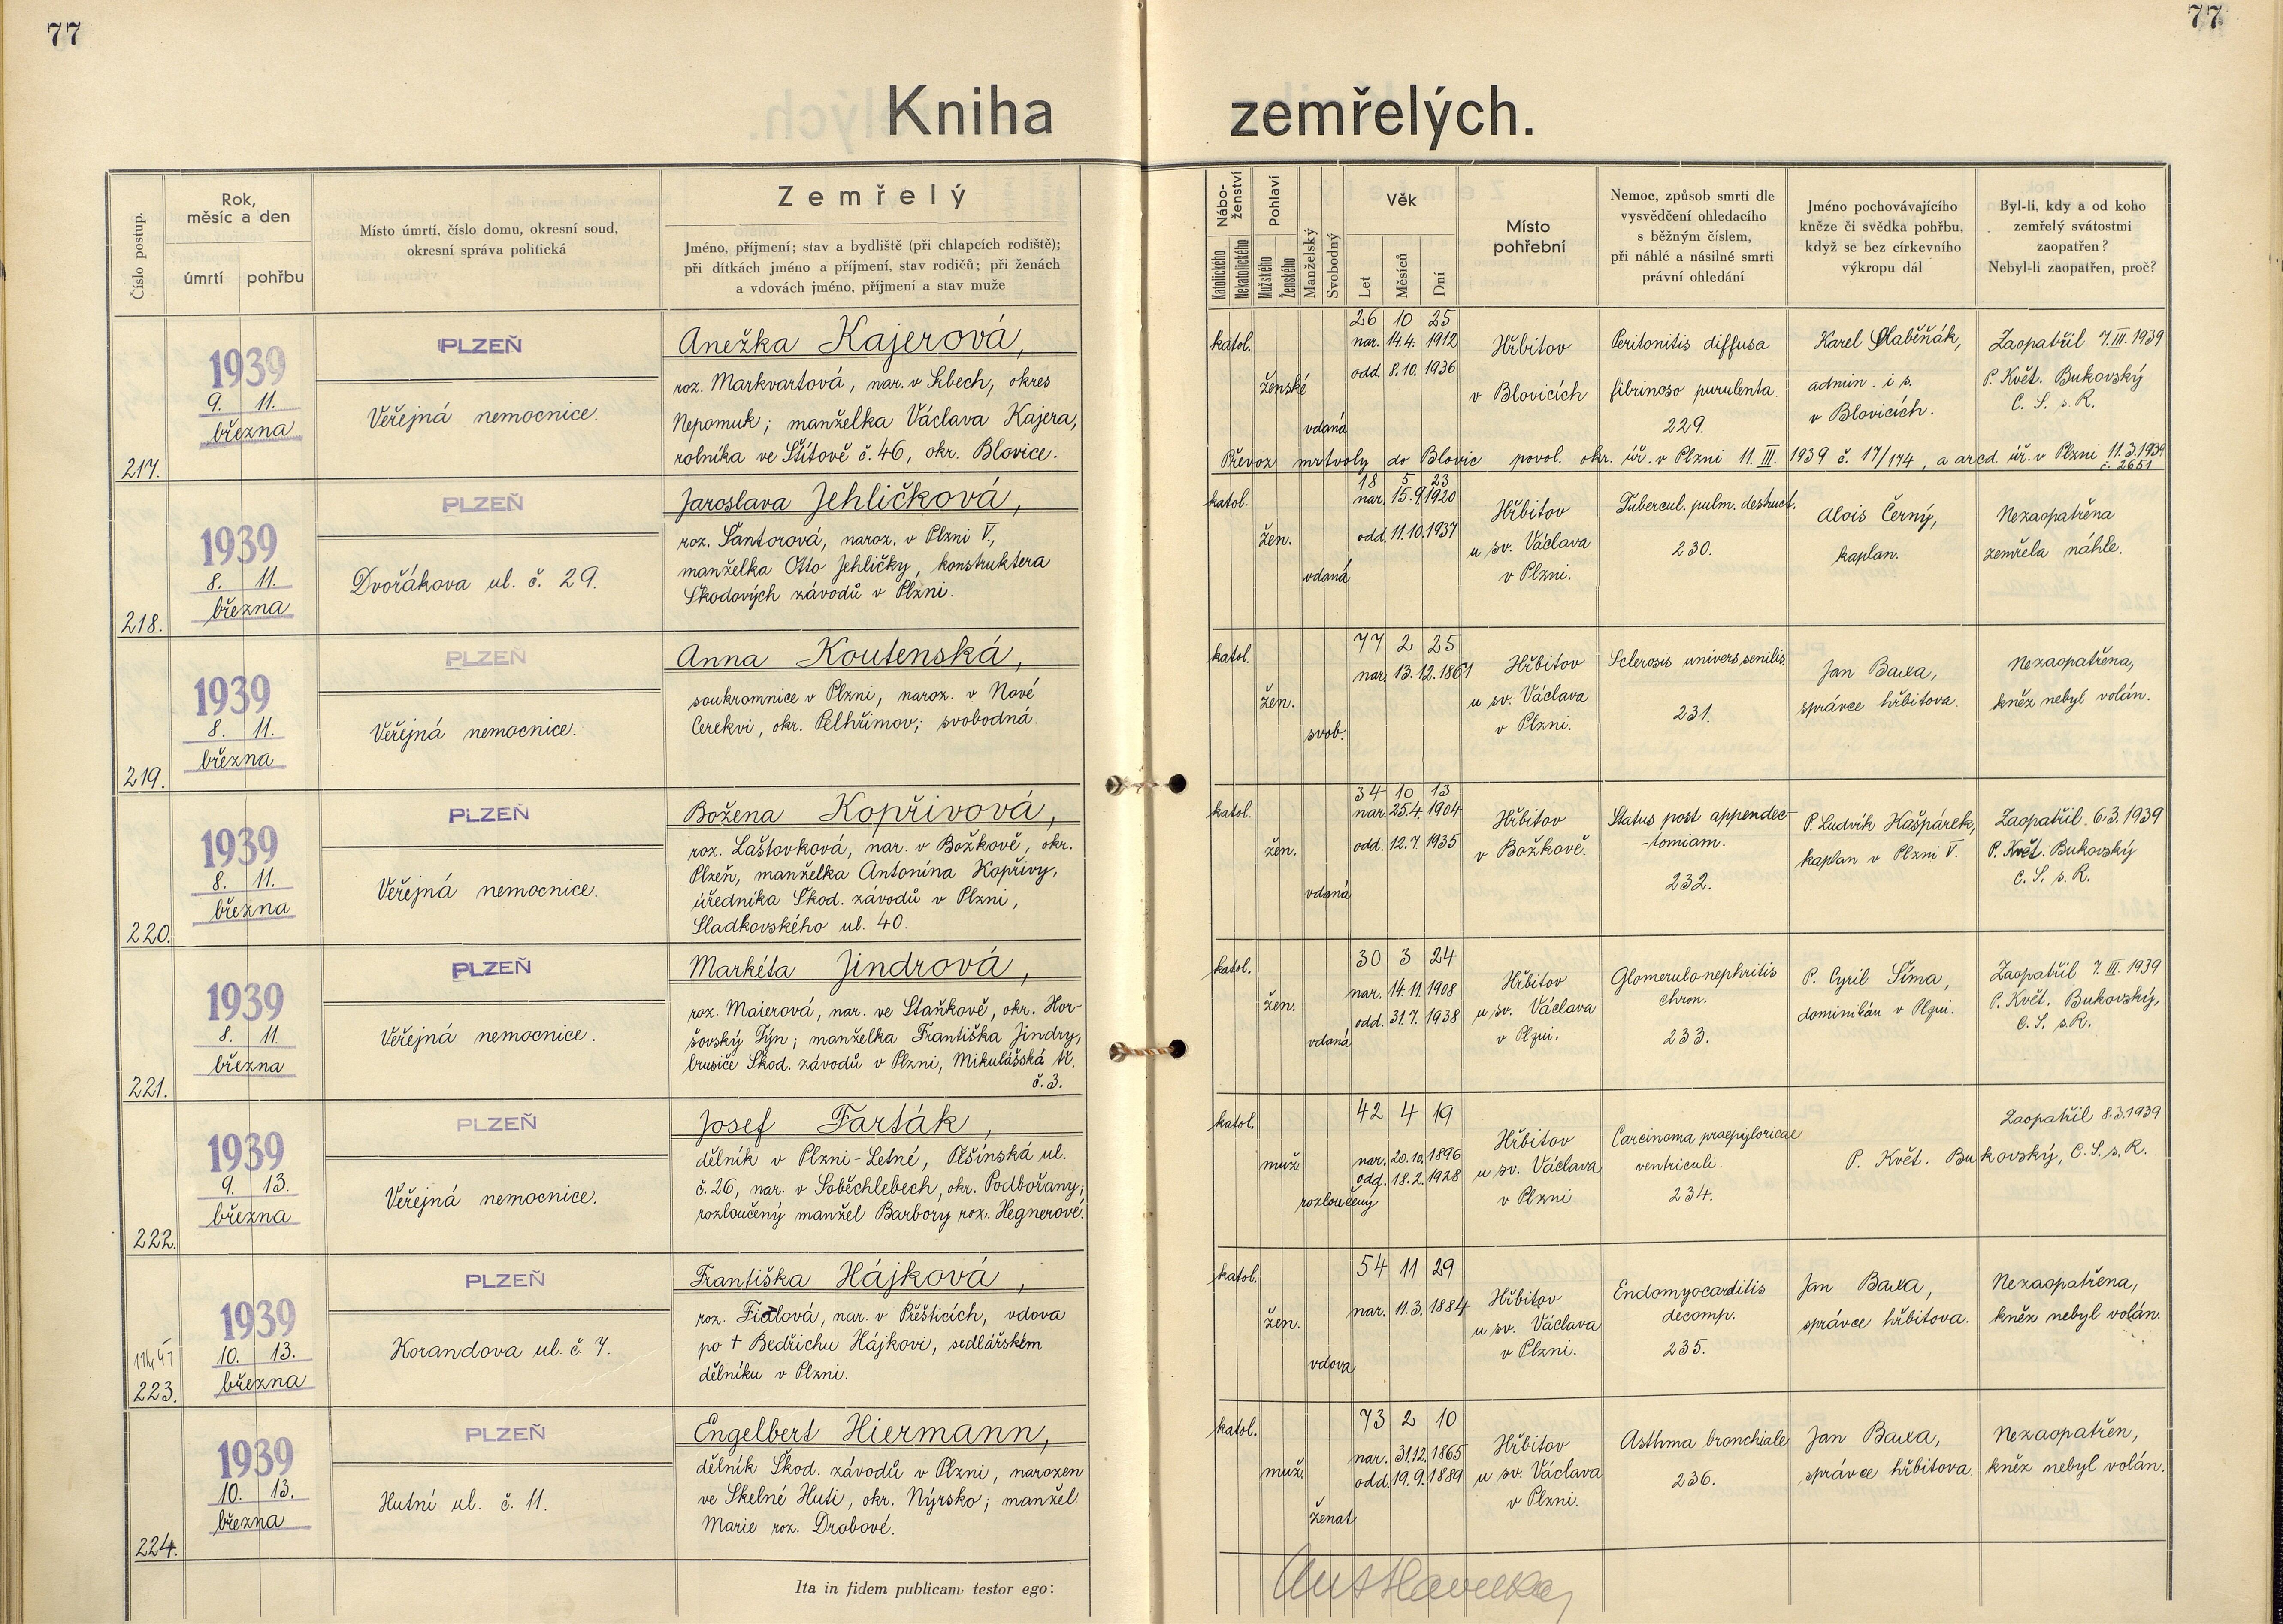 77
77
Kniha zemřelých.
Číslo postup.
Rok, měsíc a den
úmrtí
pohřbu
Místo úmrtí, číslo domu, okresní soud,
okresní správa politická
Zemřelý
Jméno, příjmení; stav a bydliště (při chlapcích rodiště);
při dítkách jméno a příjmení, stav rodičů; při ženách
a vdovách jméno, příjmení a stav muže
Nábo-
ženství
Katolického
Nekatolického
Pohlaví
Mužského
Ženského
Manželský
Svobodný
Věk
Let
Měsíců
Dní
Místo
pohřební
Nemoc, způsob smrti dle
vysvědčení ohledacího
s běžným číslem,
při náhlé a násilné smrti
právní ohledání
Jméno pochovávajícího
kněze či svědka pohřbu,
když se bez církevního
výkropu dál
Byl-li, kdy a od koho
zemřelý svátostmi
zaopatřen?
Nebyl-li zaopatřen, proč?
217.
1939
9. 11.
března
PLZEŇ
Veřejná nemocnice.
Anežka Kajerová,
roz. Markvartová, nar. v Srbech, okres
Nepomuk; manželka Václava Kajera,
rolníka ve Štítově č. 46, okr. Blovice.
katol.
ženské
vdaná
26 10 25
nar. 14.4. 1912
odd. 8.10. 1936
Hřbitov
v Blovicích
Peritonitis diffusa
fibrinoso purulenta.
229.
Karel Slaběňák,
admin. i s.
v Blovicích.
Zaopatřil 7.III.1939
P. Květ. Bukovský
C. S. s. R.
Převoz mrtvoly do Blovic povol. okr. úř. v Plzni 11. III. 1939 č. 17/174, a arcd. úř. v Plzni 11.3.1939
č. 2651
218.
1939
8. 11.
března
PLZEŇ
Dvořákova ul. č. 29.
Jaroslava Jehličková,
roz. Šantorová, naroz. v Plzni V.,
manželka Otto Jehličky, konstruktera
Škodových závodů v Plzni.
katol.
žen.
vdaná
18 5 23
nar. 15.9.1920
odd. 11.10.1937
Hřbitov
u sv. Václava
v Plzni.
Tubercul. pulm. destruct.
230.
Alois Černý,
kaplan.
Nezaopatřena
zemřela náhle.
219.
1939
8. 11.
března
PLZEŇ
Veřejná nemocnice.
Anna Koutenská,
soukromnice v Plzni, naroz. v Nové
Cerekvi, okr. Pelhřimov; svobodná.
katol.
žen.
svob.
77 2 25
nar. 13.12.1861
Hřbitov
u sv. Václava
v Plzni.
Sclerosis univers. senilis
231.
Jan Baxa,
správce hřbitova.
Nezaopatřena,
kněz nebyl volán.
220.
1939
8. 11.
března
PLZEŇ
Veřejná nemocnice.
Božena Kopřivová,
roz. Laštovková, nar. v Božkově, okr.
Plzeň, manželka Antonína Kopřivy,
úředníka Škod. závodů v Plzni,
Sladkovského ul. 40.
katol.
žen.
vdaná
34 10 13
nar. 25.4.1904
odd. 12.7. 1935
Hřbitov
v Božkově.
Status post appendec-
-tomiam.
232.
P. Ludvík Hašpárek,
kaplan v Plzni V.
Zaopatřil 6.3.1939
P. Květ. Bukovský
C. S. s. R.
221.
1939
8. 11.
března
PLZEŇ
Veřejná nemocnice.
Markéta Jindrová,
roz. Maierová, nar. ve Staňkově, okr. Hor-
šovský Týn; manželka Františka Jindry,
brusiče Škod. závodů v Plzni, Mikulášská tř.
č. 3.
katol.
žen.
vdaná
30 3 24
nar. 14.11.1908
odd. 31.7. 1938
Hřbitov
u sv. Václava
v Plzni.
Glomerulonephritis
chron.
233.
P. Cyril Šíma,
dominikán v Plzni.
Zaopatřil 7. III. 1939
P. Květ. Bukovský,
C. S. s. R.
222.
1939
9. 13.
března
PLZEŇ
Veřejná nemocnice.
Josef Farták,
dělník v Plzni-Letné, Plšínská ul.
č. 26, nar. v Soběchlebech, okr. Podbořany;
rozloučený manžel Barbory roz. Hegnerové.
katol.
muž.
rozloučený
42 4 19
nar. 20.10.1896
odd. 18.2. 1928
Hřbitov
u sv. Václava
v Plzni
Carcinoma praepyloricae
ventriculi.
234.
Zaopatřil 8.3.1939
P. Květ. Bukovský, C. S. s. R.
223.
1939
10. 13.
března
PLZEŇ
Korandova ul. č. 7.
Františka Hájková,
roz. Fialová, nar. v Přešticích, vdova
po † Bedřichu Hájkovi, sedlářském
dělníku v Plzni.
katol.
žen.
vdova
54 11 29
nar. 11.3.1884
Hřbitov
u sv. Václava
v Plzni.
Endomyocarditis
decomp.
235.
Jan Baxa,
správce hřbitova.
Nezaopatřena,
kněz nebyl volán.
224.
1939
10. 13.
března
PLZEŇ
Hutní ul. č. 11.
Engelbert Hiermann,
dělník Škod. závodů v Plzni, narozen
ve Skelné Huti, okr. Nýrsko; manžel
Marie roz. Drabové.
katol.
muž.
ženat
73 2 10
nar. 31.12.1865
odd. 19.9.1889
Hřbitov
u sv. Václava
v Plzni.
Asthma bronchiale
236.
Jan Baxa,
správce hřbitova.
Nezaopatřen,
kněz nebyl volán.
Ita in fidem publicam testor ego: